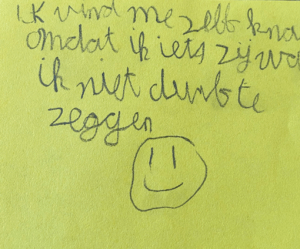 ik vind me zelf kna
omdat ik iets zij wa
ik niet durbte
zeggen